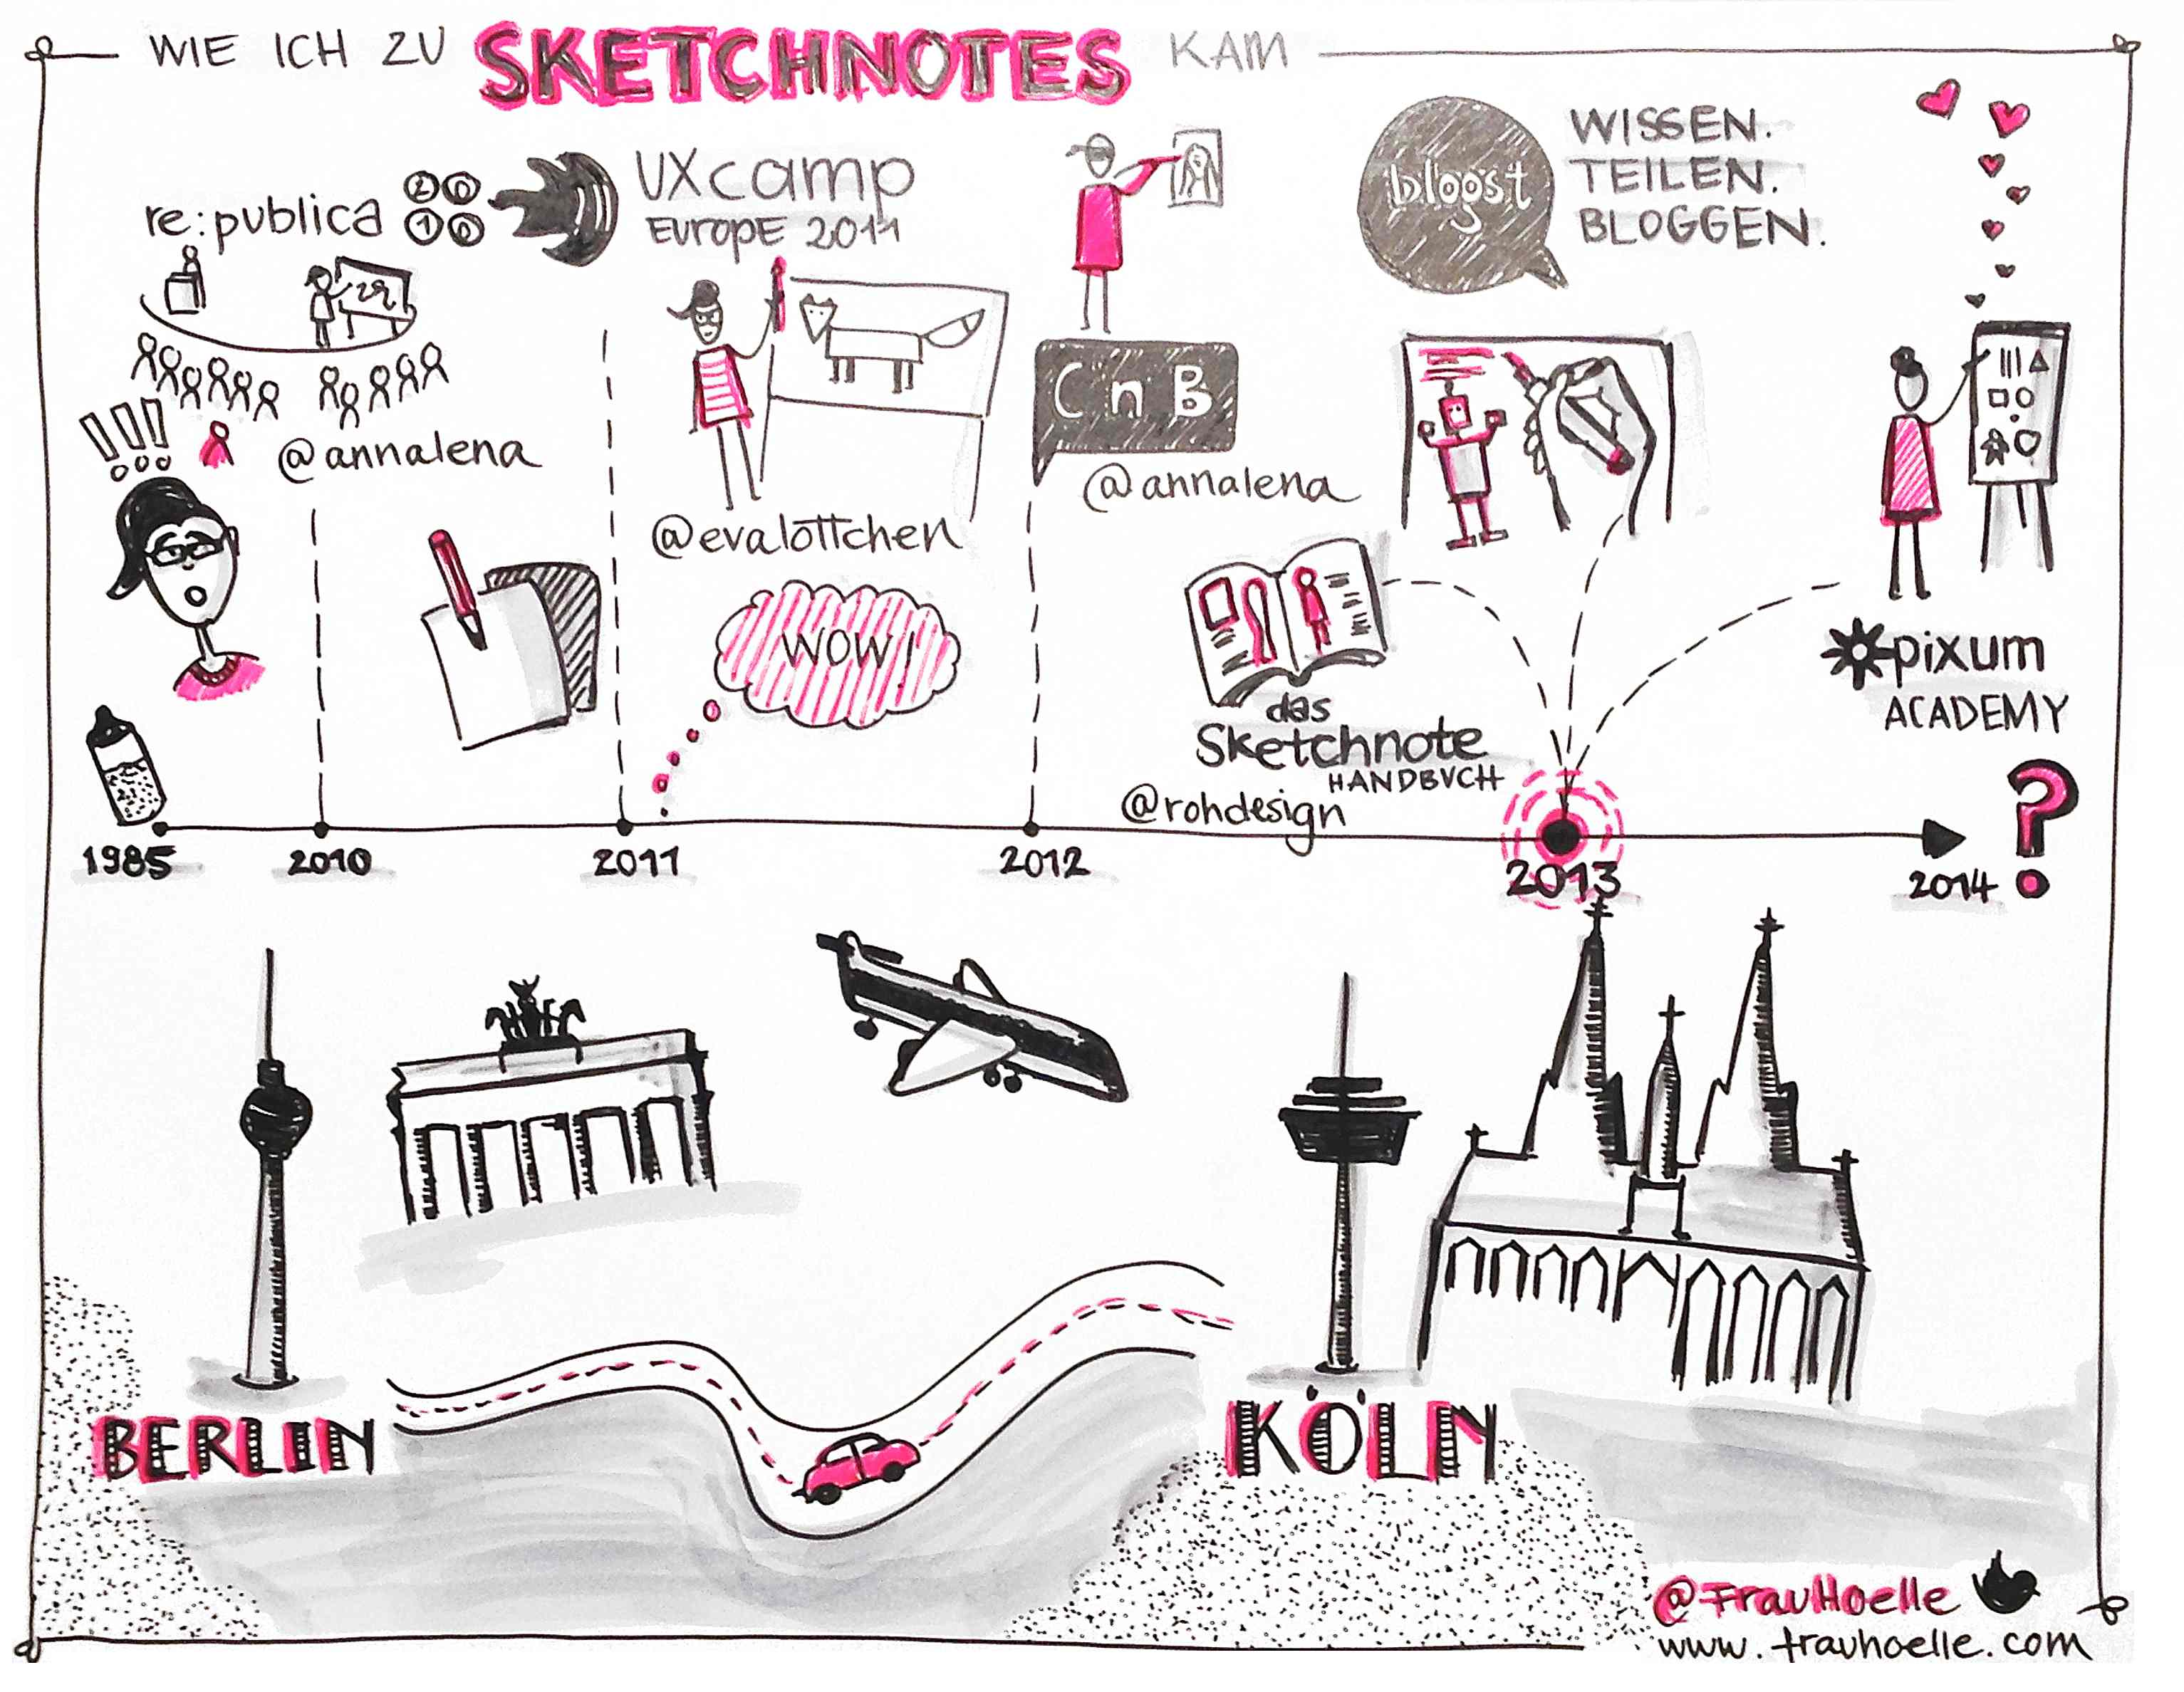 WIE ICH ZU SKETCHNOTES KAM
re:publica 2010
UXcamp
EUROPE 2011
blogst
WISSEN.
TEILEN.
BLOGGEN.
@annalena
!!!
@evalottchen
WOW!
CnB
@annalena
das
Sketchnote
HANDBUCH
@rohdesign
pixum
ACADEMY
?
1985
2010
2011
2012
2013
2014
BERLIN
KÖLN
@FrauHoelle
www.frauhoelle.com